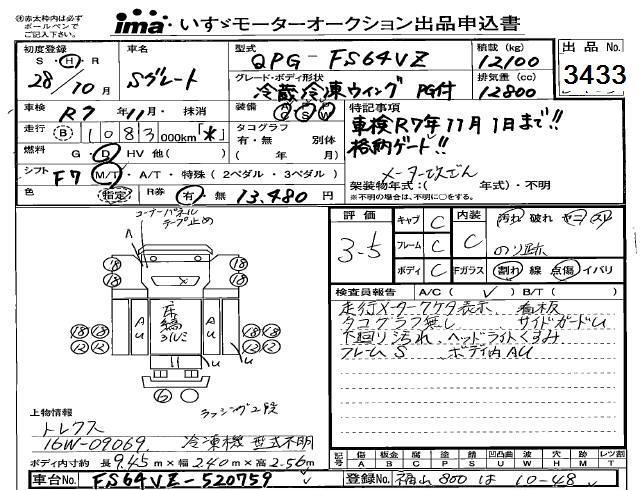 ①赤太枠内は必ず
ボールペンで
ご記入下さい。
ima いすゞモーターオークション出品申込書
初度登録 S・H・R 28/10月
車名 Sグレート
型式 QPG-FS64VZ
積載(kg) 12100
出品No. 3433
グレード・ボディ形状 冷蔵冷凍ウィング PG付
排気量(cc) 12800
車検 R7年11月・抹消
装備 AC PS PW
特記事項
車検R7年11月1日まで!!
格納ゲート!!
走行 B 1083,000km「*」
タコグラフ 有・無 別体
燃料 G・D・HV 他( )
メーター改ざん
シフト F7 M/T・A/T・特殊(2ペダル・3ペダル)
架装物年式:( 年式)・不明
※不明の場合は、不明に○をする。
色 指定 R券 有・無 13,480円
コーナーパネル
テープ止め
評価 3.5
キャブ C
フレーム C
ボディ C
内装 C
Fガラス
汚れ 破れ ヤニ スレ
のり跡
割れ 線 点傷 イバリ
検査員報告 A/C( ✓ ) B/T( )
走行メーター7ケタ表示 看板
タコグラフ無し サイドガードU
下回りサビ汚れ ヘッドライトくすみ
フレームS ボディ内AU
A
18 18
18 18
床縞
ヨルミ
AU AU
18 18 18 18
12 12 12 12
U U
6
ラッシング2段
上物情報
トレクス
16W-09069 冷凍機 型式不明
ボディ内寸約 長9.45m×幅2.40m×高2.56m
記号 傷A 板金B 腐C 塗P 錆S 凹凸曲U 波W 穴H 跡M レツ割T
車台No. FS64VZ-520759
登録No. 福山 800 は 10-48